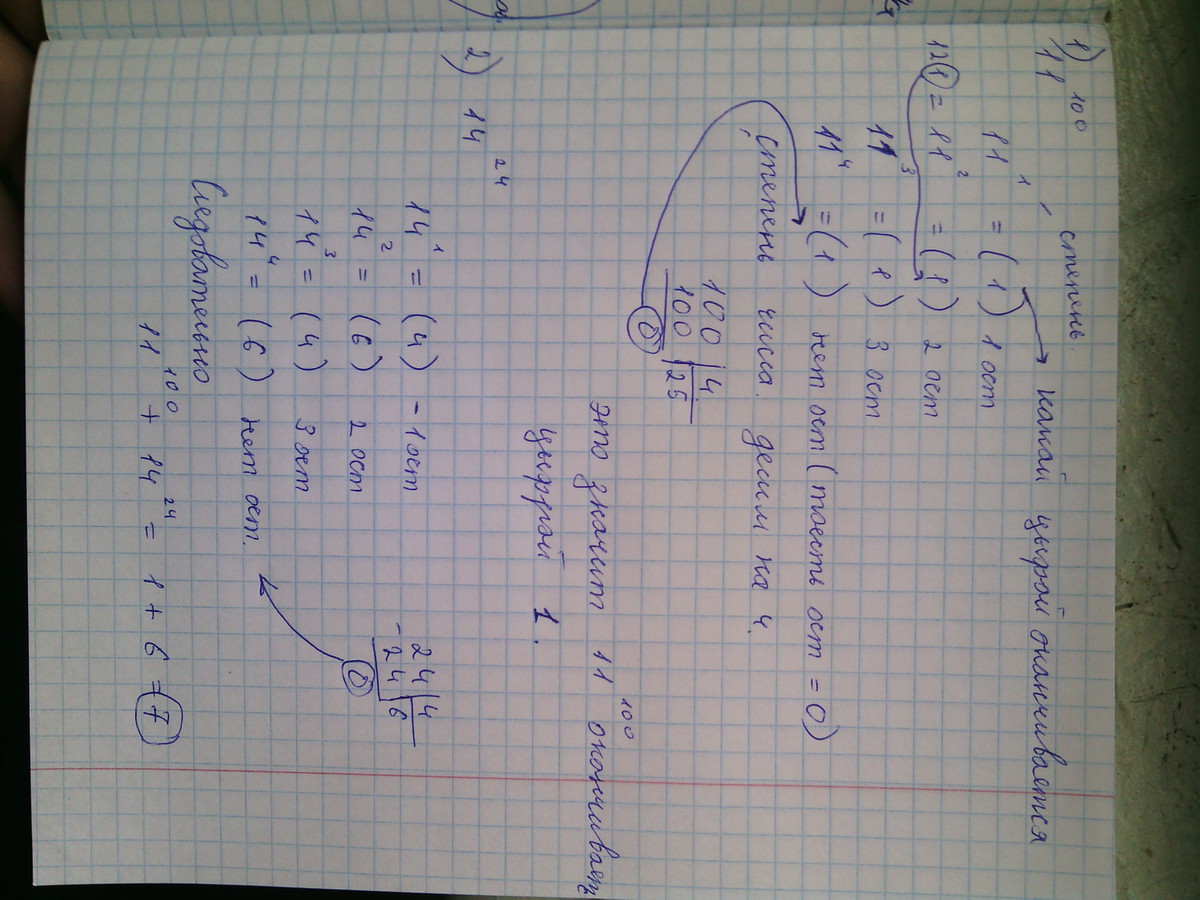 1) 11¹⁰⁰ , степень.
11¹ = (1) 1 ост какой цыфрой оканчивается
12① = 11² = (1) 2 ост
11³ = (1) 3 ост
11⁴ = (1) нет ост (тоесть ост = 0)
степень числа делим на 4.
100 | 4
100 | 25
0
Это значит 11¹⁰⁰ окончивает
цыфрой 1.
2) 14²⁴
14¹ = (4) - 1 ост
24 | 4
14² = (6) 2 ост
- 24 | 6
0
14³ = (4) 3 ост
14⁴ = (6) нет ост.
Следовательно
11¹⁰⁰ + 14²⁴ = 1 + 6 = 7